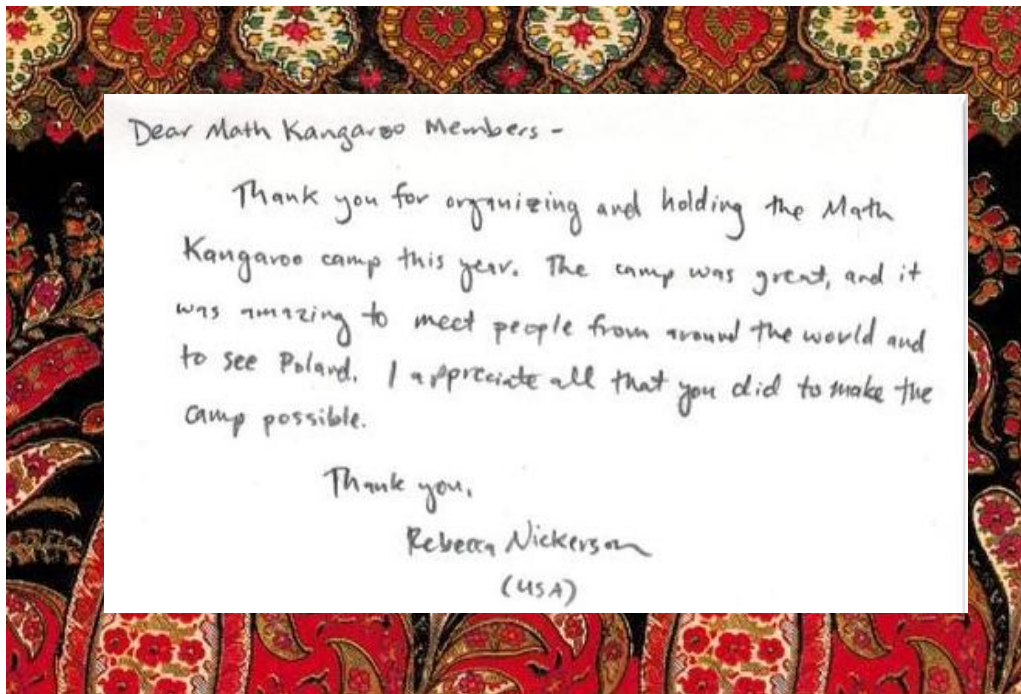 Dear Math Kangaroo Members -
Thank you for organizing and holding the Math
Kangaroo camp this year. The camp was great, and it
was amazing to meet people from around the world and
to see Poland. I appreciate all that you did to make the
camp possible.
Thank you,
Rebecca Nickerson
(USA)